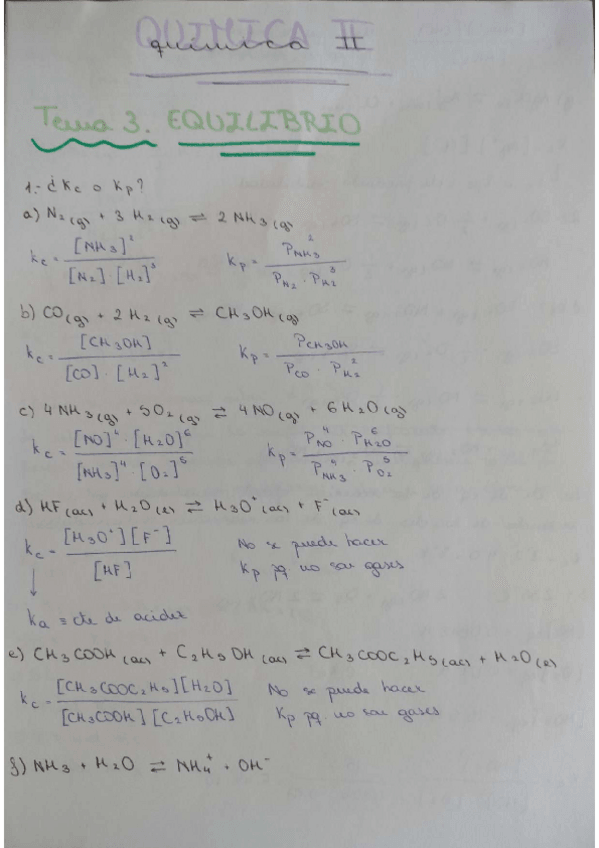 QUIMICA II
química II
Tema 3. EQUILIBRIO
1.- ¿Kc o Kp?
a) N2(g) + 3 H2(g) ⇌ 2 NH3(g)
Kc = [NH3]² / [N2]·[H2]³ Kp = P²NH3 / PN2 · P³H2
b) CO(g) + 2 H2(g) ⇌ CH3OH(g)
Kc = [CH3OH] / [CO]·[H2]² Kp = PCH3OH / PCO · P²H2
c) 4 NH3(g) + 5 O2(g) ⇌ 4 NO(g) + 6 H2O(g)
Kc = [NO]⁴·[H2O]⁶ / [NH3]⁴·[O2]⁵ Kp = P⁴NO · P⁶H2O / P⁴NH3 · P⁵O2
d) HF(ac) + H2O(l) ⇌ H3O⁺(ac) + F⁻(ac)
Kc = [H3O⁺][F⁻] / [HF] No se puede hacer
Kp pq no son gases
Ka ≡ cte de acidez
e) CH3COOH(ac) + C2H5OH(ac) ⇌ CH3COOC2H5(ac) + H2O(l)
Kc = [CH3COOC2H5][H2O] / [CH3COOH][C2H5OH] No se puede hacer
Kp pq. no son gases
f) NH3 + H2O ⇌ NH4⁺ + OH⁻